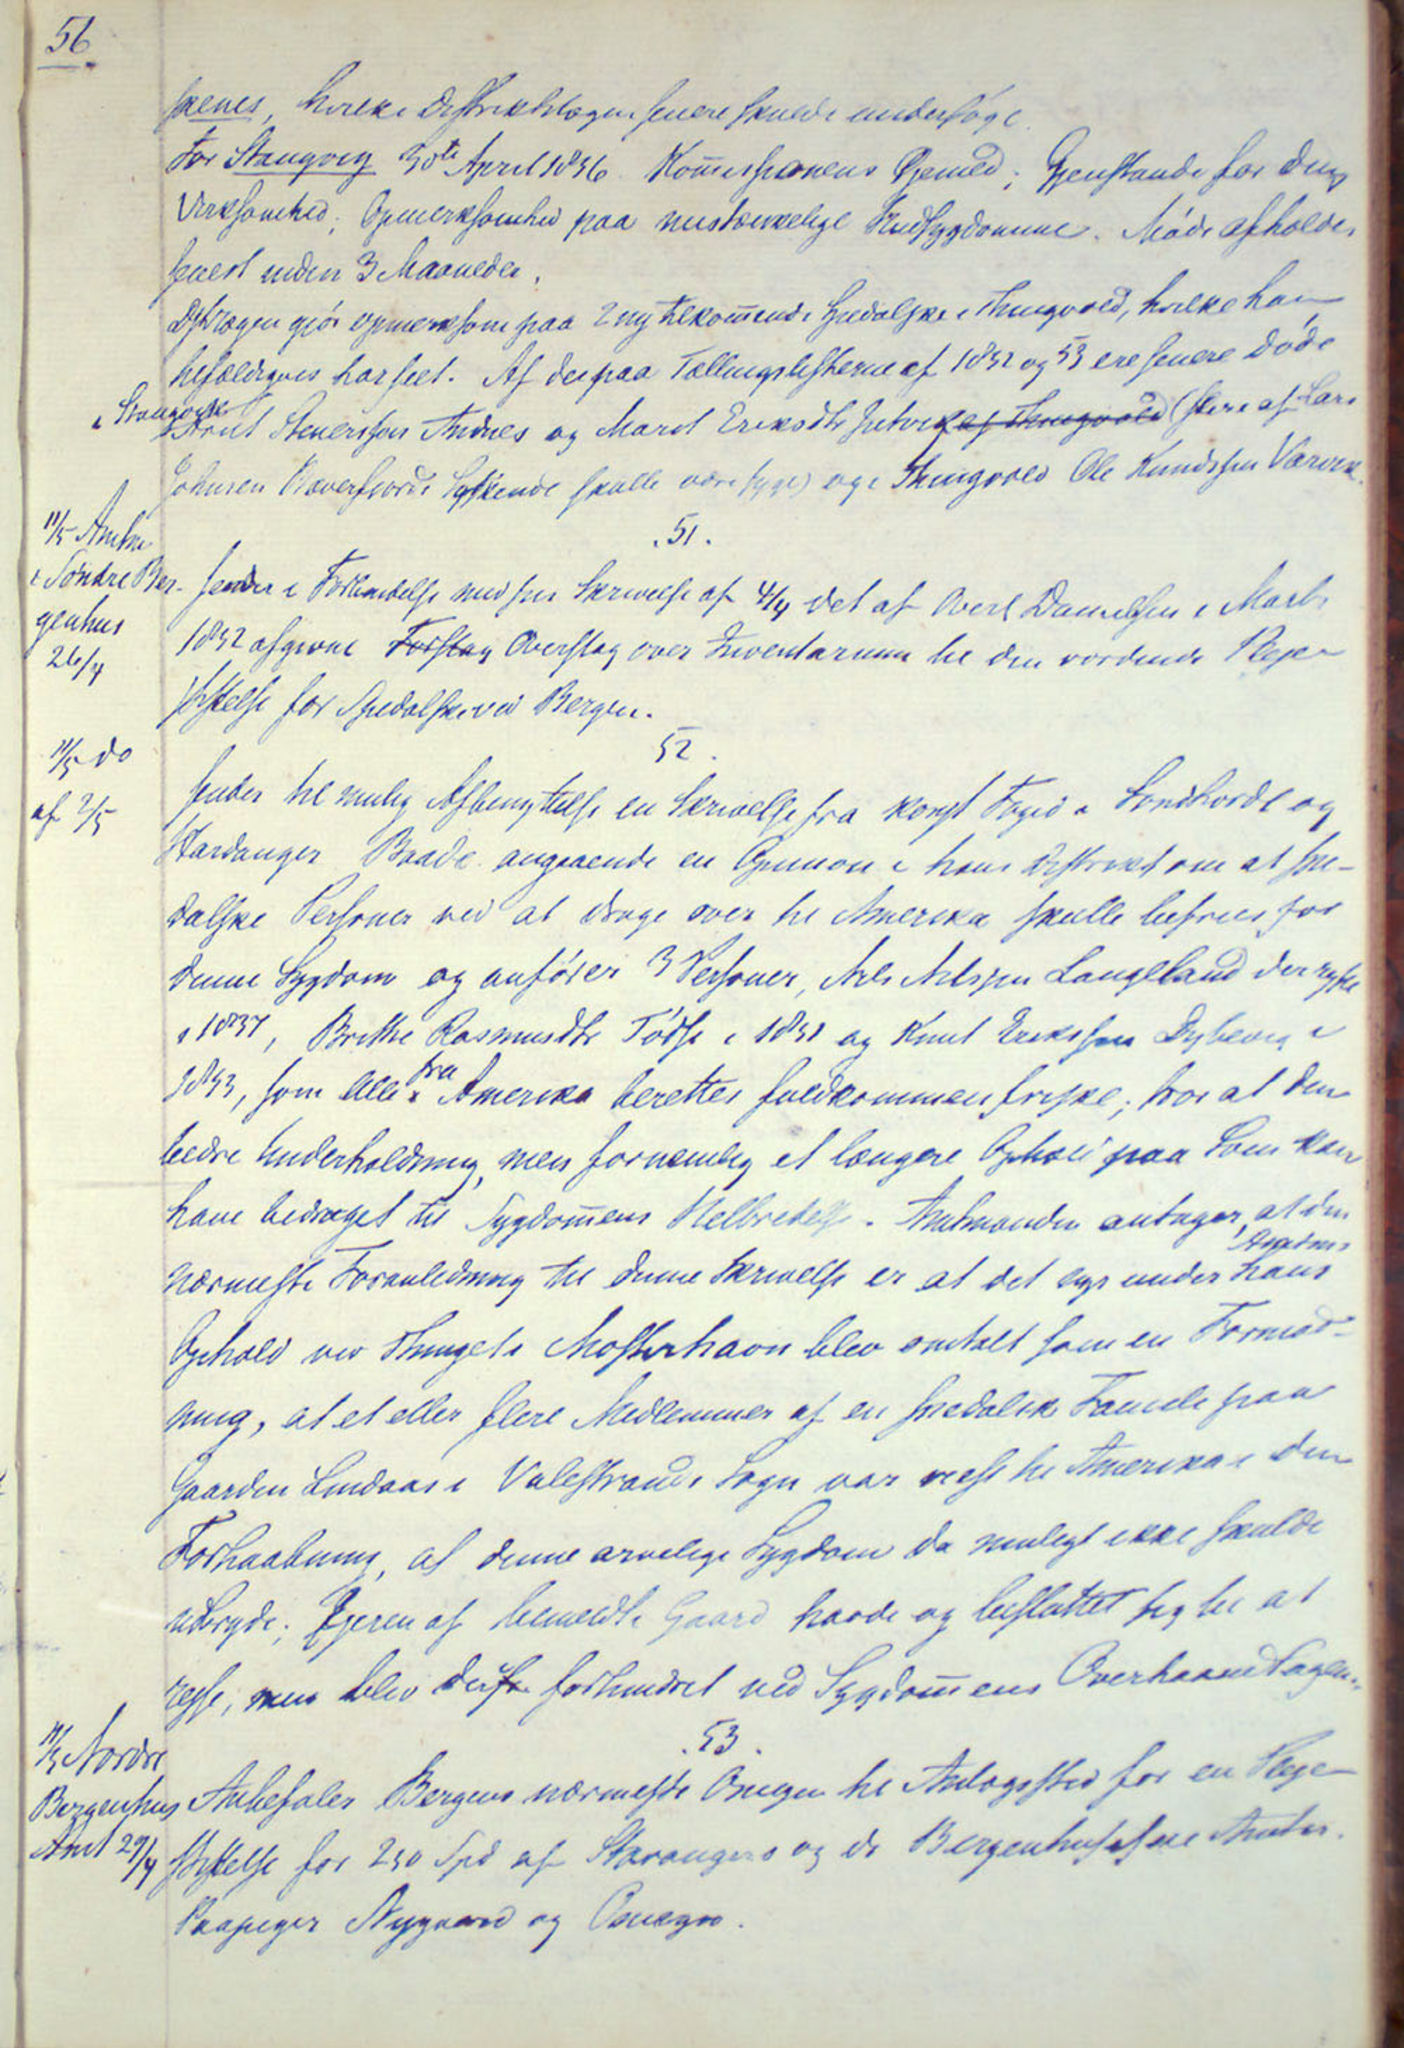 56
skenes, hvilke Distriktslægen senere skulde undersøge.
For Stangvig 30te April 1856. Kommissionens Øiemed; Gjenstande for dens
Virksomhed; Opmerksomhed paa mistænkelige Hudsygdomme. Møde afholdes
senest inden 3 Maaneder.
Dstlægen gjør opmerksom paa 2 ny tilkommende Spedalske i Thingvold, hvilke han
tilfældigvis har seet. Af de paa Tællingslisterne af 1852 og 53 ere senere døde
i Stangvig
Arnt Steversen Andnes og Marit Eriksdtr af Thingvold (flere af Lars
Johnsen Søskende skulle være syge) og i Thingvold Ole Knudssen
11/5 Amtm
i Søndre Ber-
genhus
26/4
. 51 .
sender i Forbindelse med sin Skrivelse af 4/4 det af Overl Danielssen i Marts
1852 afgivne Forslag Overslag over Inventarium til den vordende Pleie
stiftelse for Spedalske ved Bergen.
11/5 do
af 2/5
52 .
sender til mulig Afbenyttelse en Skrivelse fra konst Foged i Søndhordl og
Hardanger Baade angaaende en Opinion i hans Distrikt om at spe-
dalske Personer ved at drage over til Amerika skulle befries for
denne Sygdom og anfører 3 Personer, Nils Nilssen Langeland der reiste
i 1837, Brithe Rasmusdtr i 1851 og Knut Erikssen Dybevig i
1853, som alle fra Amerika berettes fuldkommen friske; tror at den
bedre Underholdning, men fornemlig et længere Ophold paa Søen kan
have bedraget til Sygdommens Helbredelse. Amtmanden antager, at den
nærmeste Foranledning til denne Skrivelse er at det under Amtms hans
Ophold ved Thinget i Mosterhavn blev omtalt som en Formod-
ning, at et eller flere Medlemmer af en spedalsk Familie paa
Gaarden Lindaas i Valestrands Sogn var reist til Amerika i den
Forhaabning, at denne arvelige Sygdom da muligt ikke skulde
udbryde; Ejeren af bemeldte Gaard havde og besluttet sig til at
reise, men blev forhindret ved Sygdommens Overhaandtagen.
11/5 Nordre
Bergenhus
Amt 29/4
. 53 .
Anbefaler Bergens nærmeste Omegn til Anlægssted for en Pleje
stiftelse for 250 Spd af Stavangers og de Bergenhusiske Amter.
Paapeger Nygaard og